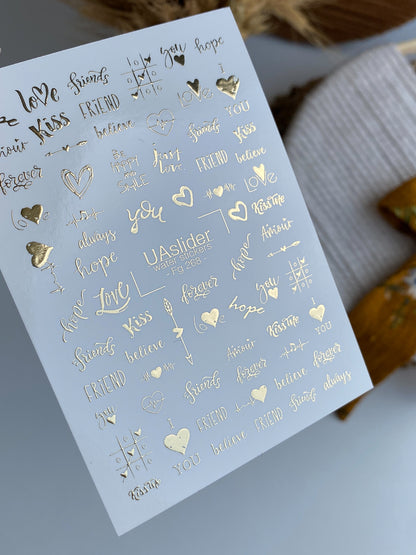 you hope
friends
love
FRIEND
I
YOU
Kiss
believe
Amour
friends
Kiss
forever
BE
HAPPY
AND
SMILE
first
love
FRIEND believe
love
you
Kiss me
always
hope
UAslider
water stickers
FG 268
Amour
hope
Love
forever
you
hope
Kiss
hope
Kiss me
I
YOU
friends
believe
Amour
forever
FRIEND
friends
believe
always
you
I
YOU
FRIEND
believe
FRIEND
friends
Kiss me